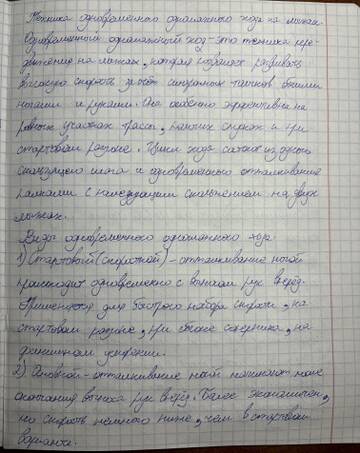 Техника одновременного одношажного хода на лыжах.
Одновременный одношажный ход - это техника пере-
движения на лыжах, которая позволяет развивать
высокую скорость за счёт синхронных толчков обеими
ногами и руками. Она особенно эффективна на
ровных участках трассы, пологих спусках и при
стартовом разгоне. Цикл хода состоит из одного
скользящего шага и одновременного отталкивания
палками с последующим скольжением на двух
лыжах.
Виды одновременного одношажного хода.
1) Стартовый (скоростной) - отталкивание ногой
происходит одновременно с выносом рук вперёд.
Применяется для быстрого набора скорости, на
стартовом разгоне, при обгоне соперника, на
финишном ускорении.
2) Основной - отталкивание ногой начинают после
окончания выноса рук вперёд. Более экономичен,
но скорость немного ниже, чем в стартовом
варианте.